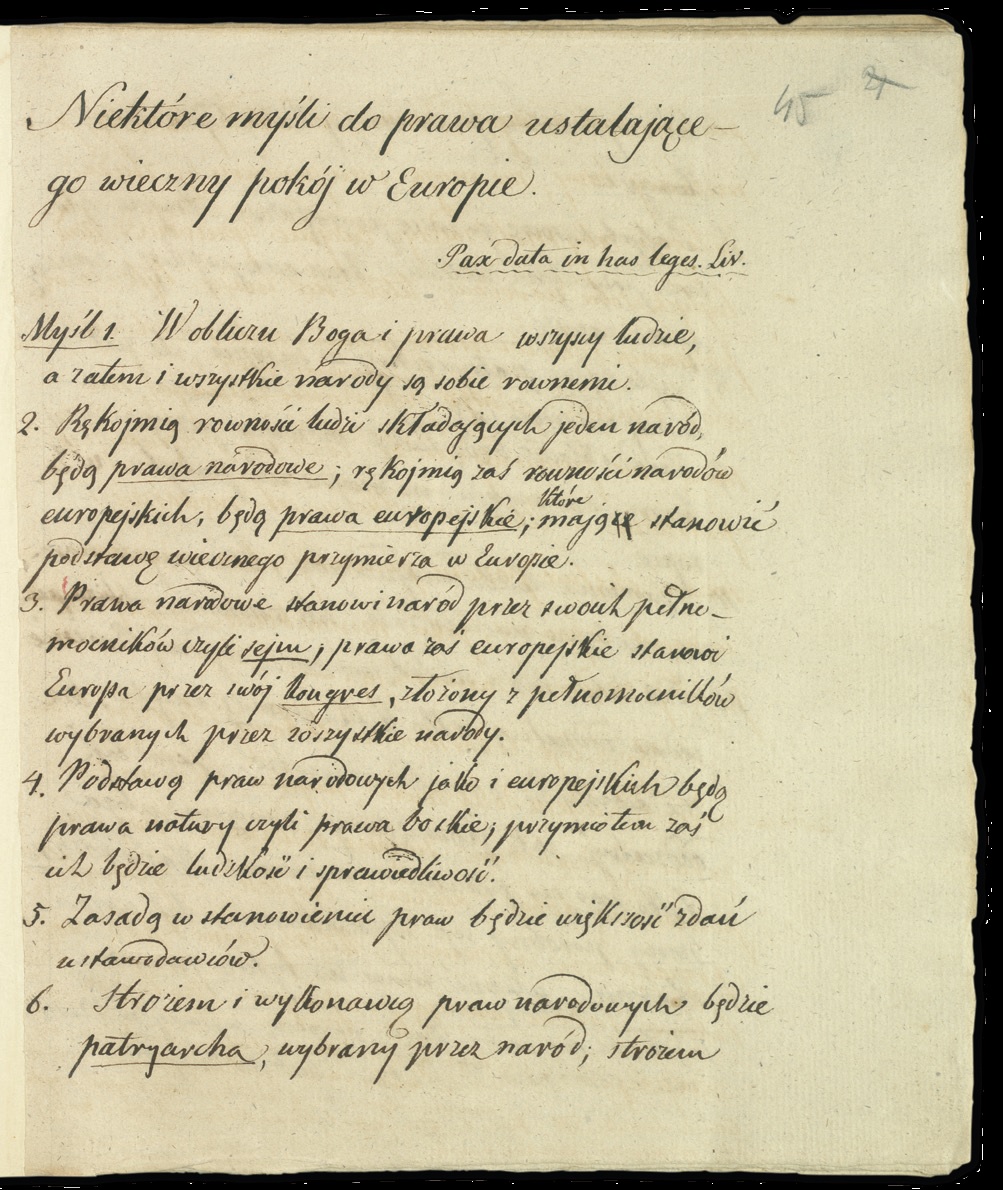 45 21
Niektóre myśli do prawa ustalające-
go wieczny pokój w Europie.
Pax data in has leges. Liv.
Myśl 1. W obliczu Boga i prawa wszyscy ludzie,
a zatem i wszystkie narody są sobie rownemi.
2. Rękojmią rowności ludzi składających jeden naród,
będą prawa narodowe; rękojmią zaś rowności narodów
które
europejskich, będą prawa europejskie; mające stanowić
podstawę wiecznego przymierza w Europie.
3. Prawa narodowe stanowi naród przez swoich pełno-
mocników czyli sejm; prawa zaś europejskie stanowi
Europa przez swój Kongres, złożony z pełnomocników
wybranych przez wszystkie narody.
4. Podstawą praw narodowych jako i europejskich będą
prawa natury czyli prawa boskie; przymiotem zaś
ich będzie ludzkość i sprawiedliwość.
5. Zasadą w stanowieniu praw będzie większość zdań
ustawodawców.
6. Strożem i wykonawcą praw narodowych będzie
patryarcha, wybrany przez naród; strożem